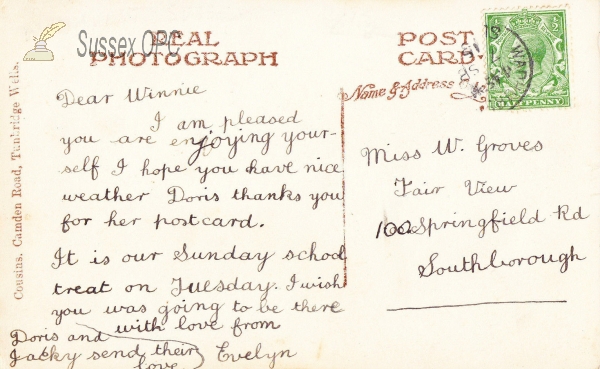 Sussex OPC
REAL
PHOTOGRAPH
POST
CARD
Name & Address
HALFPENNY
Cousins, Camden Road, Tunbridge Wells.
Dear Winnie
I am pleased
you are enjoying your-
self I hope you have nice
weather Doris thanks you
for her postcard.
It is our Sunday school
treat on Tuesday. I wish
you was going to be there
with love from
Evelyn
Doris and
Jacky send their
love
Miss W. Groves
Fair View
100 Springfield Rd
Southborough